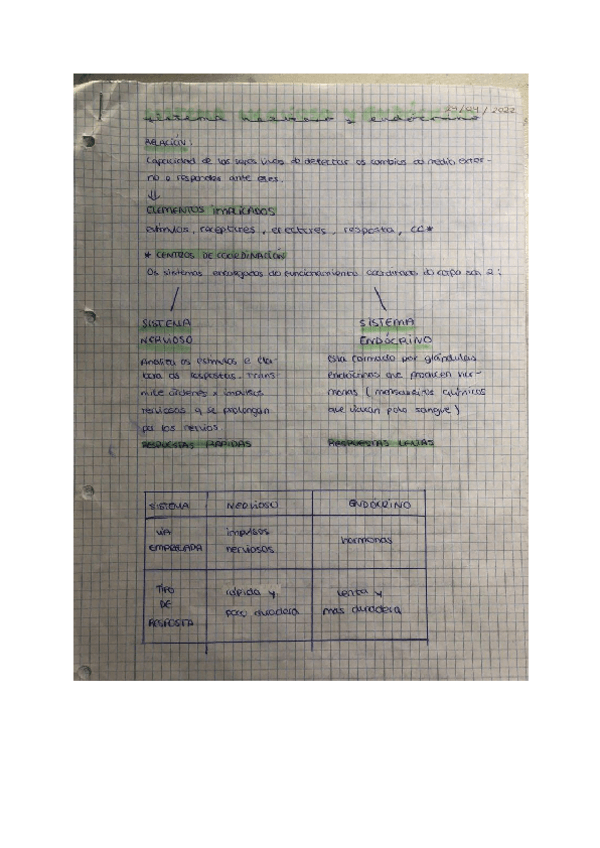 24/04/2022
Sistema nervioso y endócrino
RELACIÓN:
Capacidad de los seres vivos de detectar os cambios do medio exter-
no e responder ante eles.
ELEMENTOS IMPLICADOS
estímulos, receptores, efectores, resposta, CC*
* CENTROS DE COORDINACIÓN
Os sistemas encargados do funcionamiento coordinado do corpo son 2:
SISTEMA
NERVIOSO
Analiza os estímulos e ela-
bora as respostas, trans-
mite órdenes x impulsos
nerviosos q se prolongan
por los nervios
RESPUESTAS RÁPIDAS
SISTEMA
ENDÓCRINO
Esta formado por glándulas
endócrinas que producen hor-
monas (mensaxeiros químicos
que viaxan polo sangue)
RESPUESTAS LENTAS
SISTEMA NERVIOSO ENDÓCRINO
VÍA
EMPREGADA
impulsos
nerviosos
hormonas
TIPO
DE
RESPOSTA
rápida y
poco duradera
lenta y
mas duradera